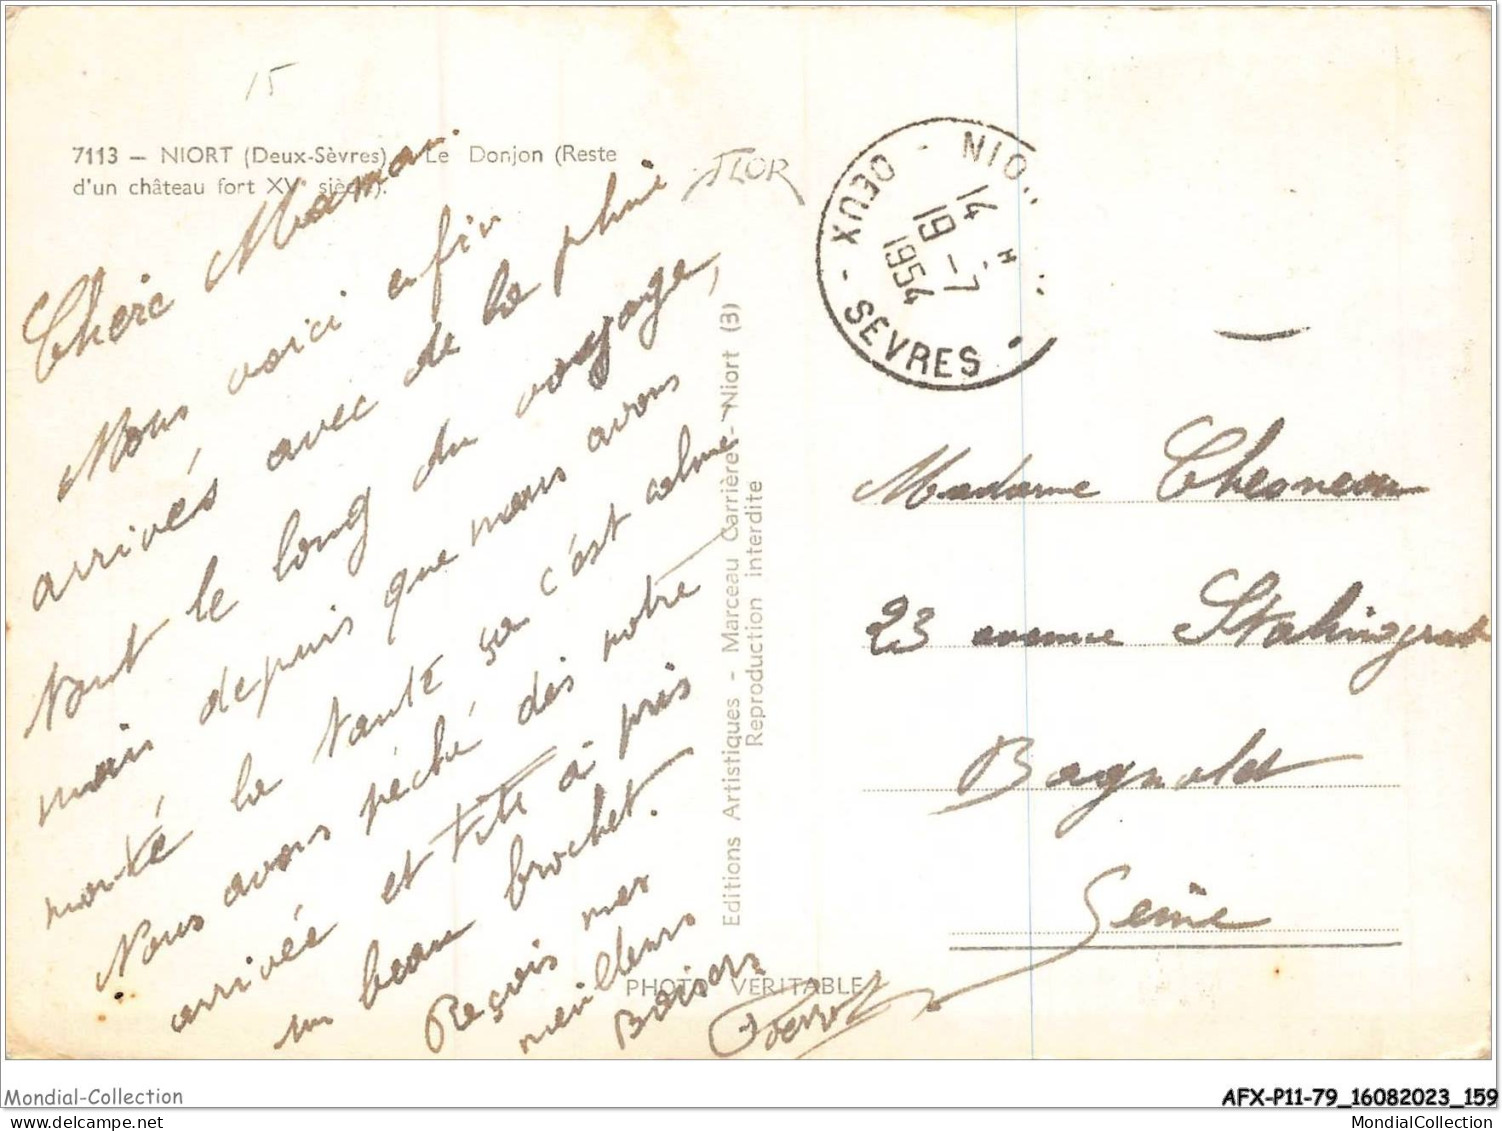 15
7113 — NIORT (Deux-Sèvres) - Le Donjon (Reste
d'un château fort XV siècle).
JLOR
Chère Maman
Nous voici enfin
arrivés avec de la pluie
tout le long du voyage,
mais depuis que nous avons
monté la tante ça c'est calmé
Nous avons péché dès notre
arrivée et Titi à pris
un beau brochet.
Reçois mes
meilleurs
Baisers
Editions Artistiques - Marceau Carrière - Niort (3)
Reproduction interdite
PHOTO VERITABLE
NIO
DEUX - SEVRES
14 H
19 - 7
1954
Madame Chesneau
23 avenue Stalingrad
Bagnolet
Seine
Mondial-Collection
AFX-P11-79_16082023_159
MondialCollection
MondialCollection